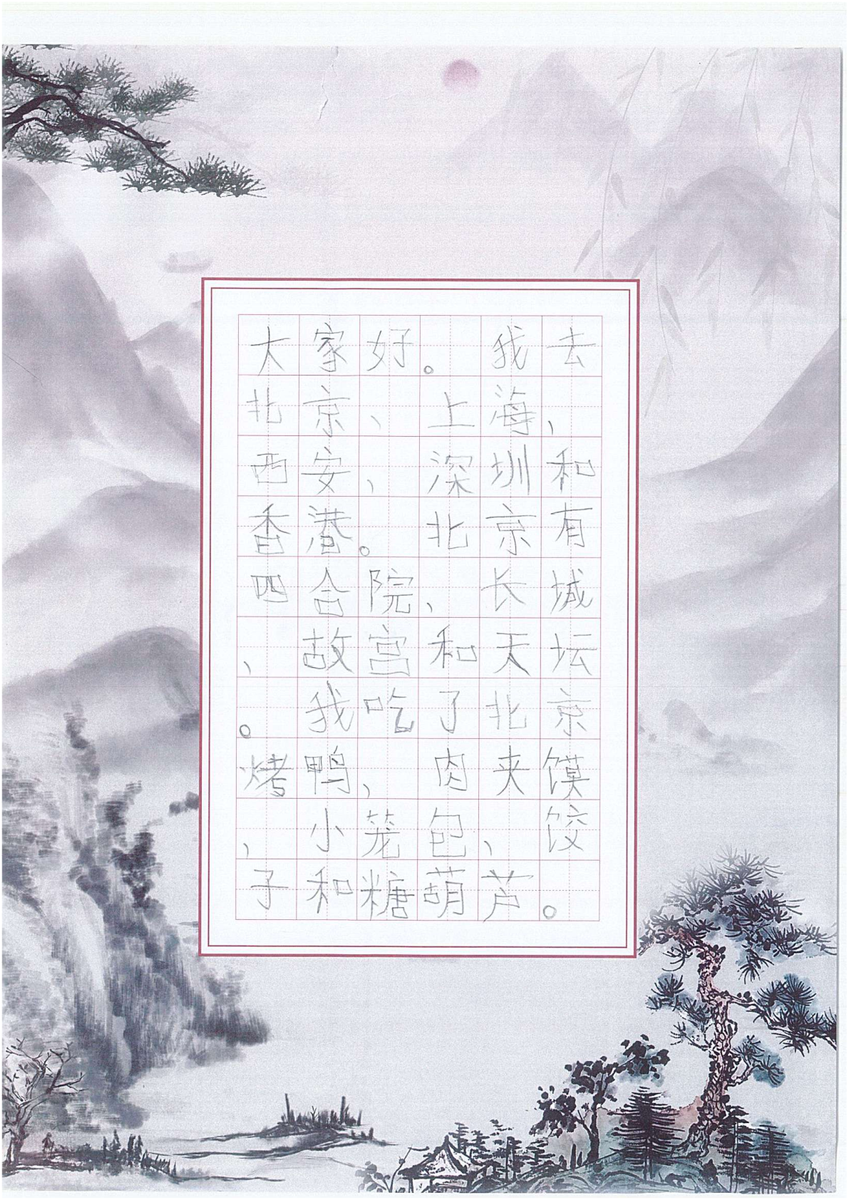 大家好。我去
北京、上海，
西安、深圳和
香港。北京有
四合院、长城
、故宫和天坛
。我吃了北京
烤鸭，肉夹馍
、小笼包、饺
子和糖葫芦。